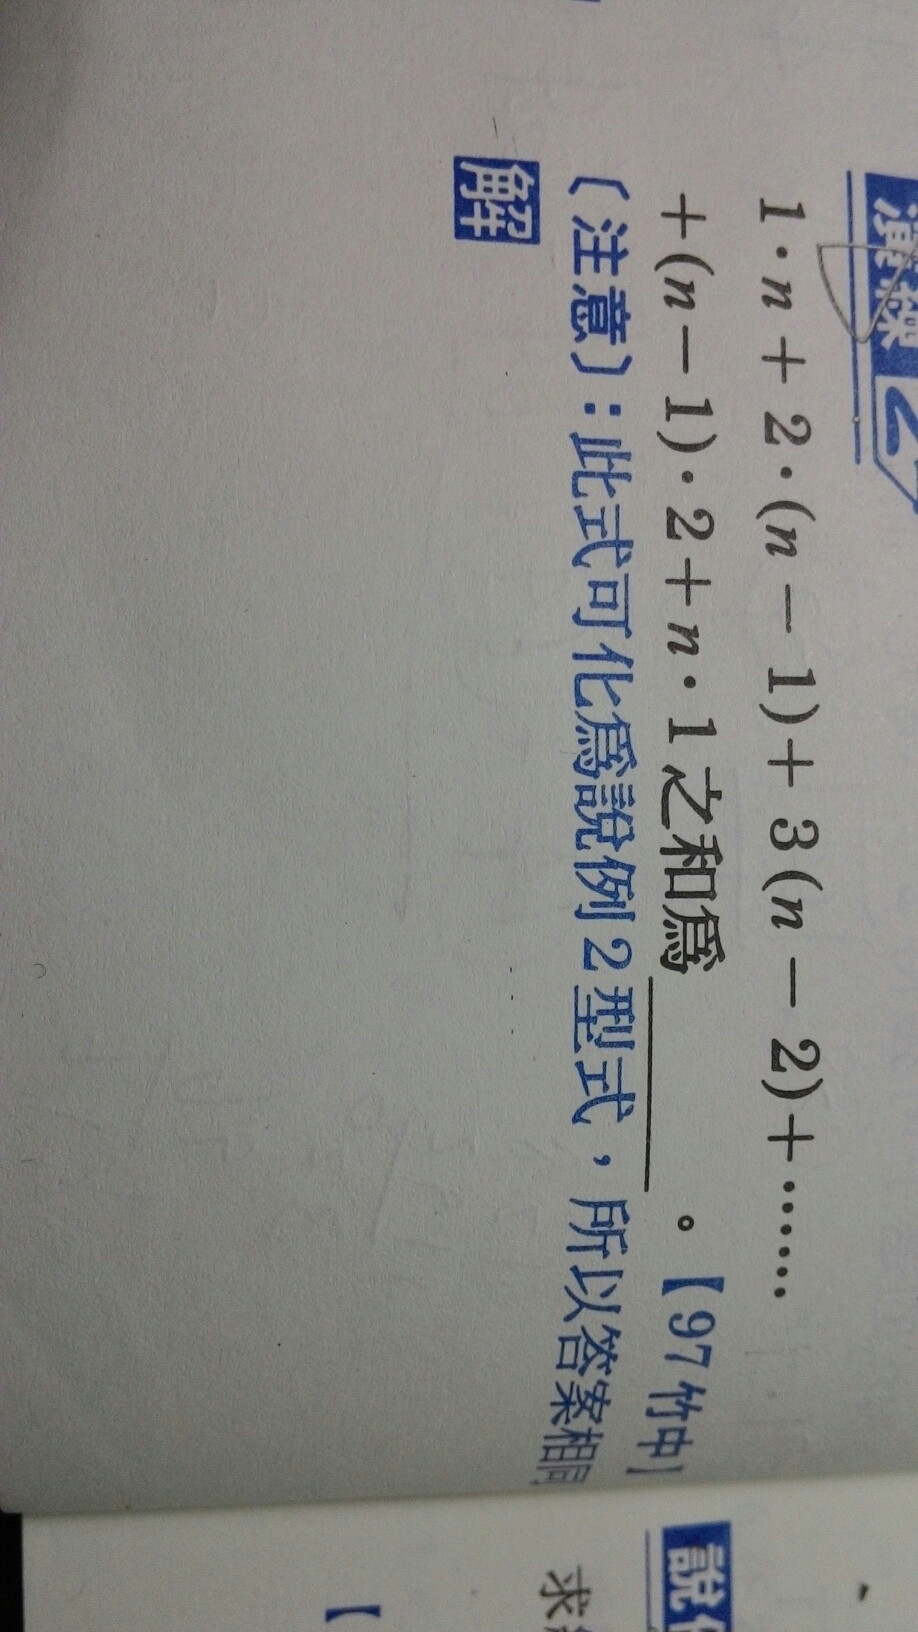 演練 2
1·n+2·(n-1)+3(n-2)+……
+(n-1)·2+n·1之和爲＿＿＿。【97竹中】
〔注意〕：此式可化爲說例2型式，所以答案相同
解
說
求
【